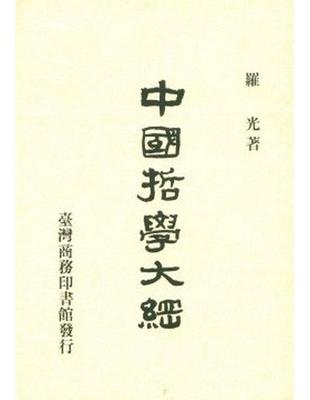 羅光著
中國哲學大綱
臺灣商務印書館發行